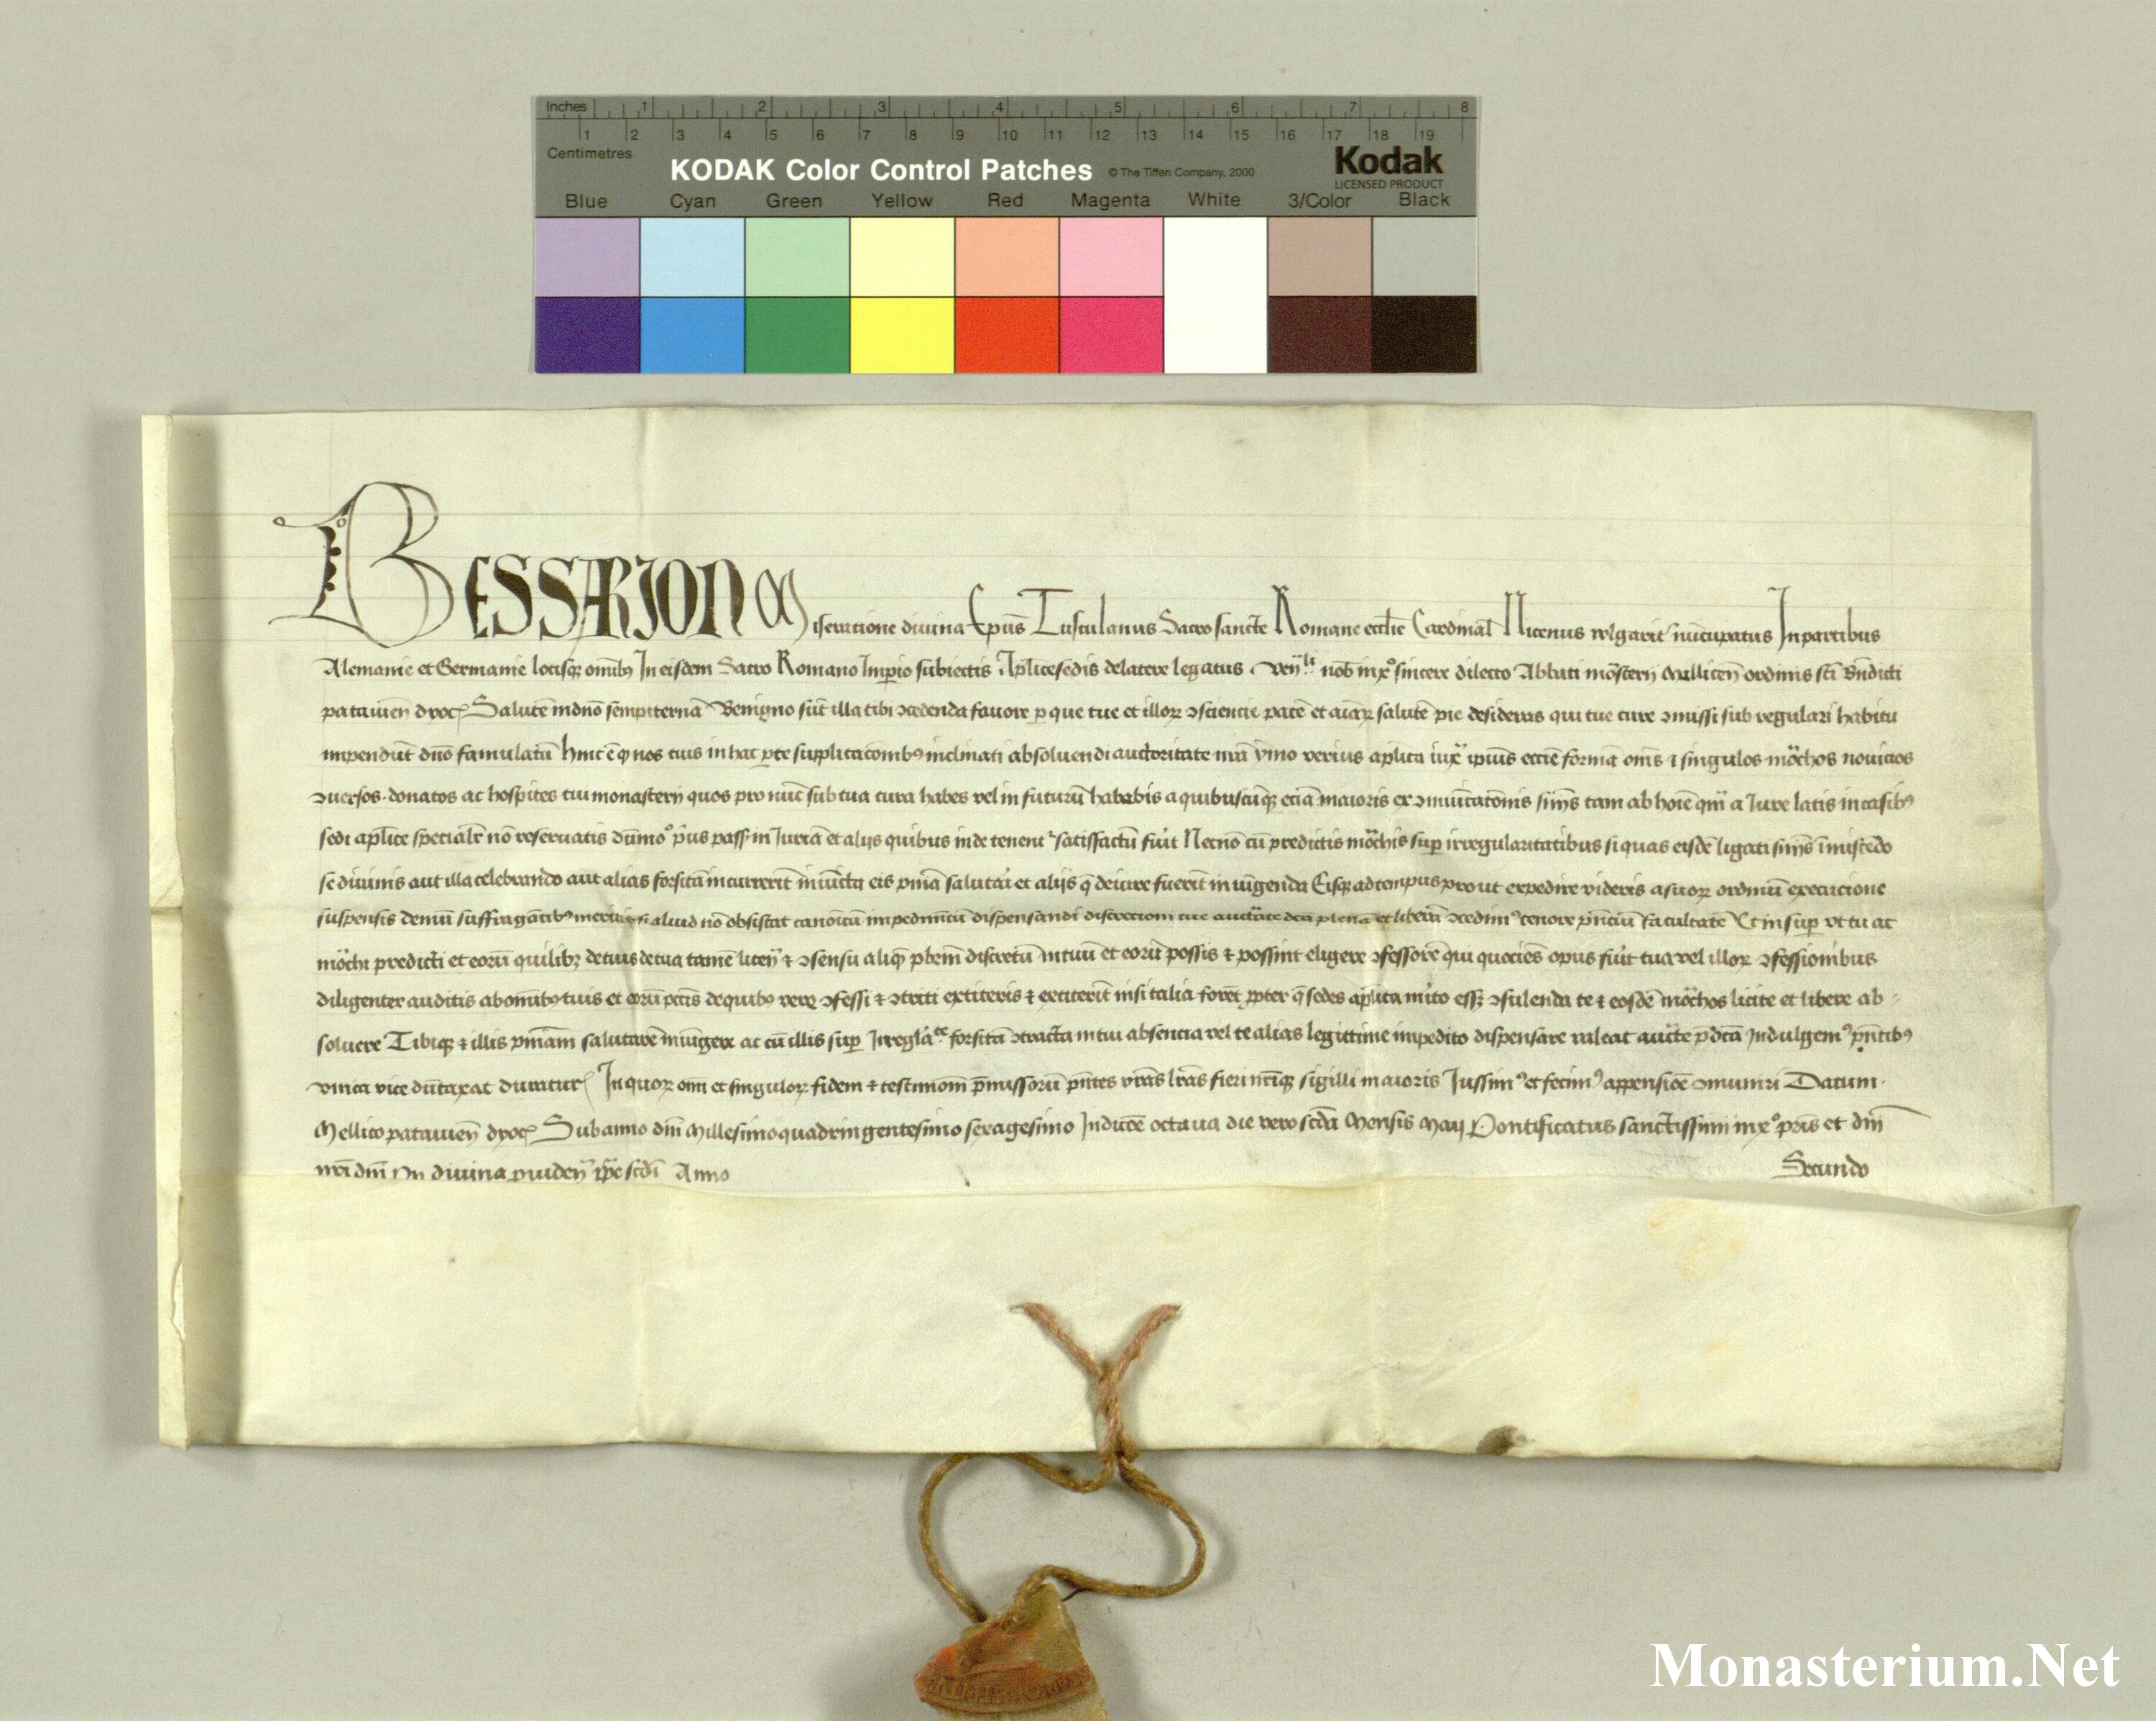 Inches 1 2 3 4 5 6 7 8
1 2 3 4 5 6 7 8 9 10 11 12 13 14 15 16 17 18 19
Centimetres
KODAK Color Control Patches © The Tiffen Company, 2000 Kodak
LICENSED PRODUCT
Blue Cyan Green Yellow Red Magenta White 3/Color Black
BESSARION Miseratione divina Ep̄us Tusculanus Sacrosancte Romane eccl̄ie Cardinal̄ Nicenus vulgarit̕ nūcupatus In partibus
Alemanie et Germanie locisqꝫ om̄ibꝰ In eisdem Sacro Romano Imp̄io subiectis Ap̄lice sedis de latere legatus Ven̄li nob̄ in xp̄o sincere dilecto Abbati mōsterij Mellicen̄ ordinis sc̄i Bn̄dicti
patauien̄ dyoc̄ Salutē in dn̄o sempiternā Benigno sūt illa tibi ꝯcedenda fauore ꝑ que tue et illoꝝ ꝯsciencie pacē et aīaꝝ salutē pie desideras qui tue cure ꝯmissi sub regulari habitu
impendūt dn̄o famulatū hinc ē ꝙ nos tuis in hac ꝑte supplicacōnibꝰ inclinati absoluendi auctoritate nr̄a ymo verius ap̄lica iux̄ ipius eccīe formā om̄s ⁊ singulos mōchos nouicios
ꝯuersos donatos ac hospites tui monasterij quos pro nūc sub tua cura habes vel in futurū habebis a quibuscūqꝫ eciā maioris exꝯmuīcatōnis sn̄īs tam ab hoīe qm̄ a Iure latis in casibꝰ
sedi ap̄lice specialr̄ nō reseruatis dūmō p̕us pass̄ in Iuriā et alijs quibus inde tenent̕ satisfactū fu̕it Necnō cū predictis mōchis suꝑ irregularitatibus si quas eisdē ligati sn̄īs īmiscēdo
se diuinis aut illa celebrando aut alias forsitā incurrerīt iniūcta eis pn̄ia salutari et alijs q̄ de iure fuerīt iniūgenda Eisqꝫ ad tempus prout expedire videris a suoꝝ ordinū execucione
suspensis demū suffragātibꝰ meritis si aliud nō obsistat canoīcū impedimn̄tū dispensandi discrecioni tue auctāte dc̄a plenā et liberā ꝯcedimꝰ tenore pn̄ciū facultatē Et insuꝑ vt tu ac
mōchi predicti et eorū quilibꝫ de tuis de tua tamē licen̄ ⁊ ꝯsensu aliqꝫ pb̄rm discretū in tuū et eorū possis ⁊ possint eligere ꝯfessorē qui quociēs opus fu̕it tua vel illoꝝ ꝯfessionibus
diligenter auditis ab om̄ibꝰ tuis et eorū pcc̄is de quibꝰ vere ꝯfessi ⁊ ꝯtriti extiteris ⁊ extiterīt nisi talia forēt ꝓpter q̄ sedes ap̄lica m̕ito essꝫ ꝯsulenda te ⁊ eosdē mōchos licite et libere ab
soluere Tibiqꝫ ⁊ illis pn̄iam salutarē iniūgere ac cū illis suꝑ Irreglāte forsitā ꝯtracta in tui absencia vel te alias legittime impedito dispensare valeat aucte p̄dc̄a Indulgemꝰ pn̄tibꝰ
vnica vice dūtaxat duratur̄ In quoꝝ om̄i et singuloꝝ fidem ⁊ testimoni p̄missorū pn̄tes nr̄as lr̄as fieri nr̄iqꝫ sigilli maioris Iussimꝰ et fecimꝰ appensiōe ꝯmuniri Datum
Mellico patauien̄ dyoc̄ Sub anno dn̄i Millesimoquadringentesimo sexagesimo Indicōe octaua die vero scd̄a Mensis Maij Pontificatus sanctissimi in xp̄o pr̄is et dn̄i
nr̄i dn̄i Pij diuina ꝓuiden̄ pp̄e scd̄i Anno Secundo
Monasterium.Net